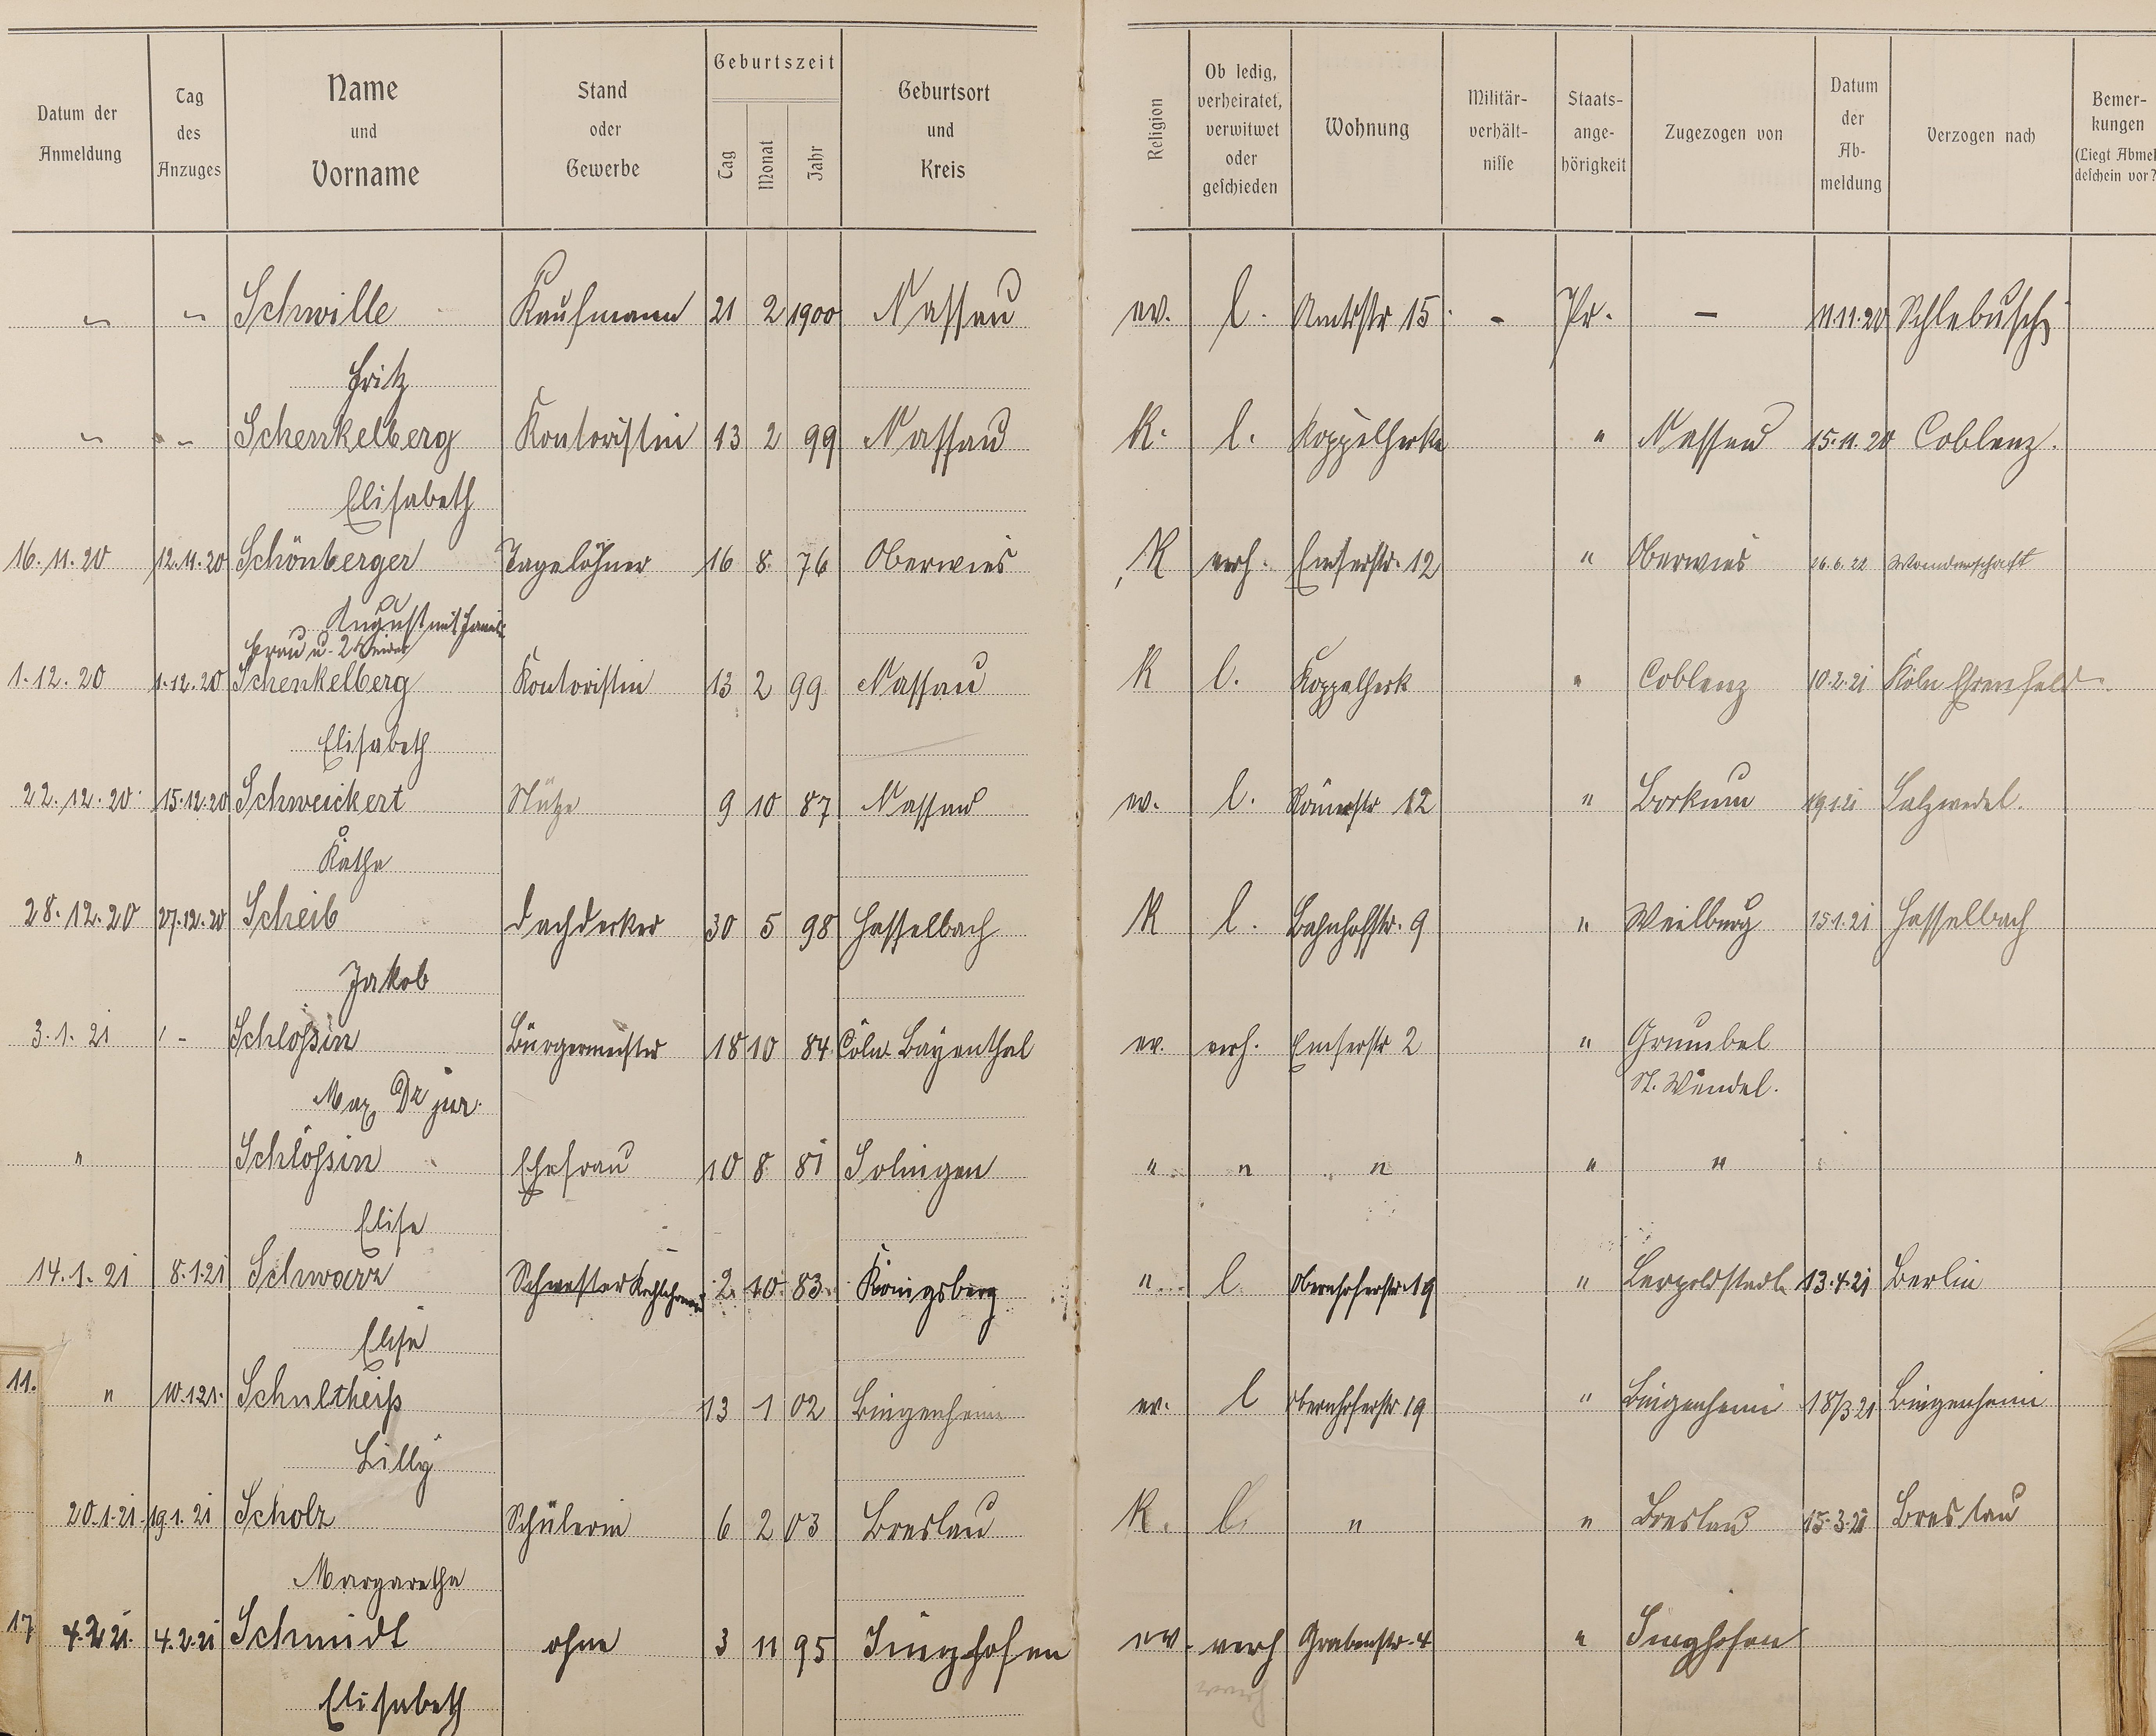 Datum der Anmeldung | Tag des Anzuges | Name und Vorname | Stand oder Gewerbe | Geburtszeit Tag Monat Jahr | Geburtsort und Kreis | Religion | Ob ledig, verheiratet, verwitwet oder geschieden | Wohnung | Militär-verhält-nisse | Staats-ange-hörigkeit | Zugezogen von | Datum der Ab-meldung | Verzogen nach | Bemer-kungen (Liegt Abmel deschein vor?
" " Schwille Kaufmann 21 2 1900 Nassau ev. l. Amtsstr 15 - Pr. - 11.11.20 Schlebusch
Fritz
" " Schenkelberg Kontoristin 13 2 99 Nassau K. l. " Nassau 15.11.20 Coblenz.
Elisabeth
16.11.20 12.11.20 Schönberger Tagelöhner 16 8 76 Oberwies K verh. Emserstr. 12 " Oberwies 26.6.22 Wanderschaft
August mit Famil.
Frau u. 2 Kinder
1.12.20 1.12.20 Schenkelberg Kontoristin 13 2 99 Nassau K l. " Coblenz 10.2.21 Köln Ehrenfeld
Elisabeth
22.12.20 15.12.20 Schweickert Stütze 9 10 87 Nassau ev. l. Römerstr 12 " Borkum 19.1.21 Salzwedel.
Käthe
28.12.20 27.12.20 Scheib Dachdecker 30 5 98 Hasselbach K l. Bahnhofstr. 9 " Weilburg 15.1.21 Hasselbach
Jakob
3.1.21 Schloßin Bürgermeister 18 10 84 Cöln Bayenthal ev. verh. Emserstr 2 " Grumbel
Max Dr jur. St. Wendel.
" Schloßin Ehefrau 10 8 81 Solingen " " " " "
Elise
14.1.21 8.1.21 Schwarz Schwester 2. 10. 83. Königsberg " l Obernhoferstr. 19 " Leopoldstadt 13.4.21 Berlin
Elise
11. " 10.1.21. Schultheiß 13 1 02 Bingenheim ev. l Obernhoferstr 19 " Bingenheim 18/3 21 Bingenheim
Lilly
20.1.21. 19.1.21 Scholz Schülerin 6 2 03 Breslau K. l. " " Breslau 15.3.21 Breslau
Margarethe
17 4.2.21. 4.2.21 Schmidt ohne 3 11 95 Singhofen ev. verh Grabenstr. 4 " Singhofen
Elisabeth